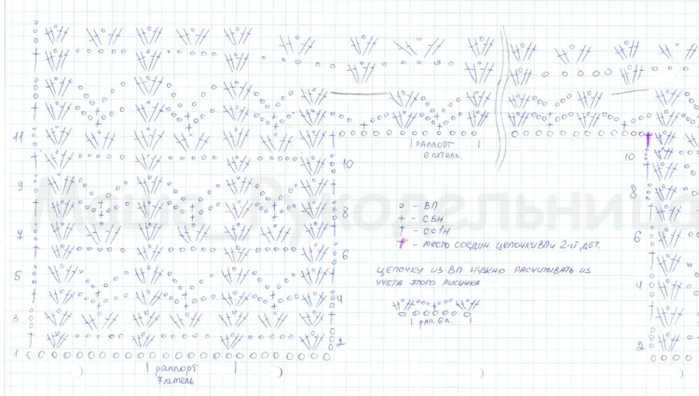 11
9
7
5
3
1
10
8
6
4
2
раппорт
7 петель
раппорт
8 петель.
о - ВП
+ - СБН
† - СС1Н
† - место соедин. цепочки ВП и 2-й дет.
цепочку из ВП нужно расчитывать из
учета этого рисунка
рап. 6 п.
10
8
6
4
2
Маша Рукодельница